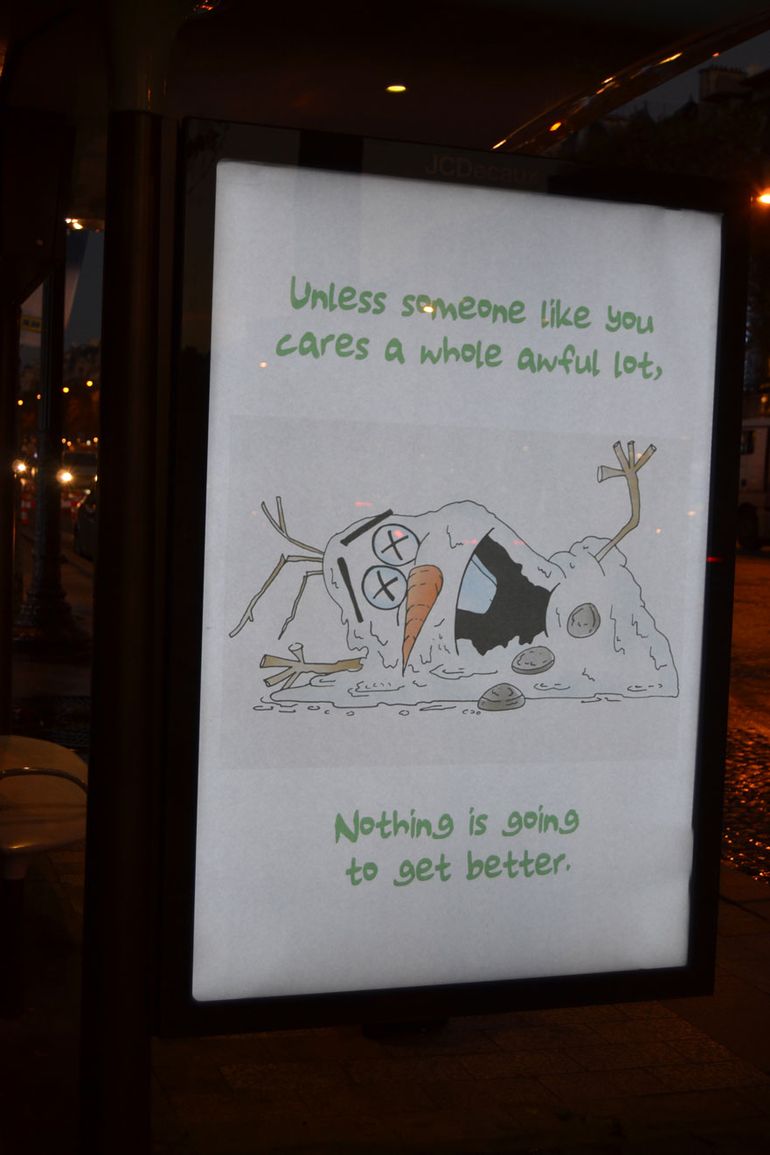 JCDecaux
Unless someone like you
cares a whole awful lot,
Nothing is going
to get better.